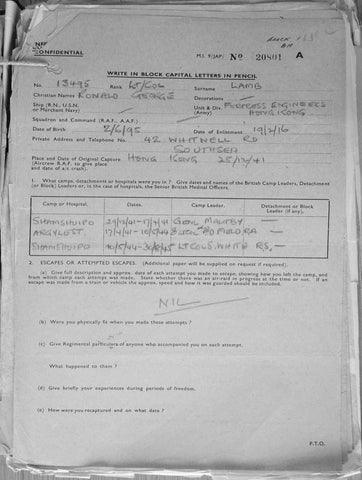 CONFIDENTIAL
M.I. 9/JAP/ No 20801 A
WRITE IN BLOCK CAPITAL LETTERS IN PENCIL
No. 13495 Rank Lt/Col Surname LAMB
Christian Names RONALD GEORGE Decorations —
Ship (R.N., U.S.N. or Merchant Navy) Unit (Army) Div. FORTRESS ENGINEERS HONG KONG
Squadron and Command (R.A.F., A.A.F.)
Date of Birth 2/6/95 Date of Enlistment 19/2/16
Private Address and Telephone No. 42 WHITWELL RD
SOUTHSEA
Place and Date of Original Capture HONG KONG 25/12/41
(Aircrew R.A.F. to give place and date of a/c crash).
1. What camps, detachments or hospitals were you in? Give dates and names of the British Camp Leaders, Detachment
(or Block) Leaders or, in case of hospitals, the Senior British Medical Officers.
Camp or Hospital. Dates. Camp Leader. Detachment or Block Leader (if any).
SHAMSHUIPO 29/12/41-17/4/41 GENL MALTBY —
ARGYLE ST. 17/4/41-10/5/44 —
SHAMSHUIPO 10/5/44-30/8/45 LT COL S. WHITE R.S. —
2. ESCAPES OR ATTEMPTED ESCAPES. (Additional paper will be supplied on request if required).
(a) Give full description and approx. date of each attempt you made to escape, showing how you left the camp, and
from which camp each attempt was made. State whether there was an air-raid in progress at the time or not. If an
escape was made from a train or vehicle the approx. speed and how it was guarded should be included.
NIL
(b) Were you physically fit when you made these attempts?
(c) Give Regimental particulars of anyone who accompanied you on each attempt.
What happened to them?
(d) Give briefly your experiences during periods of freedom.
(e) How were you recaptured and on what date?
P.T.O.